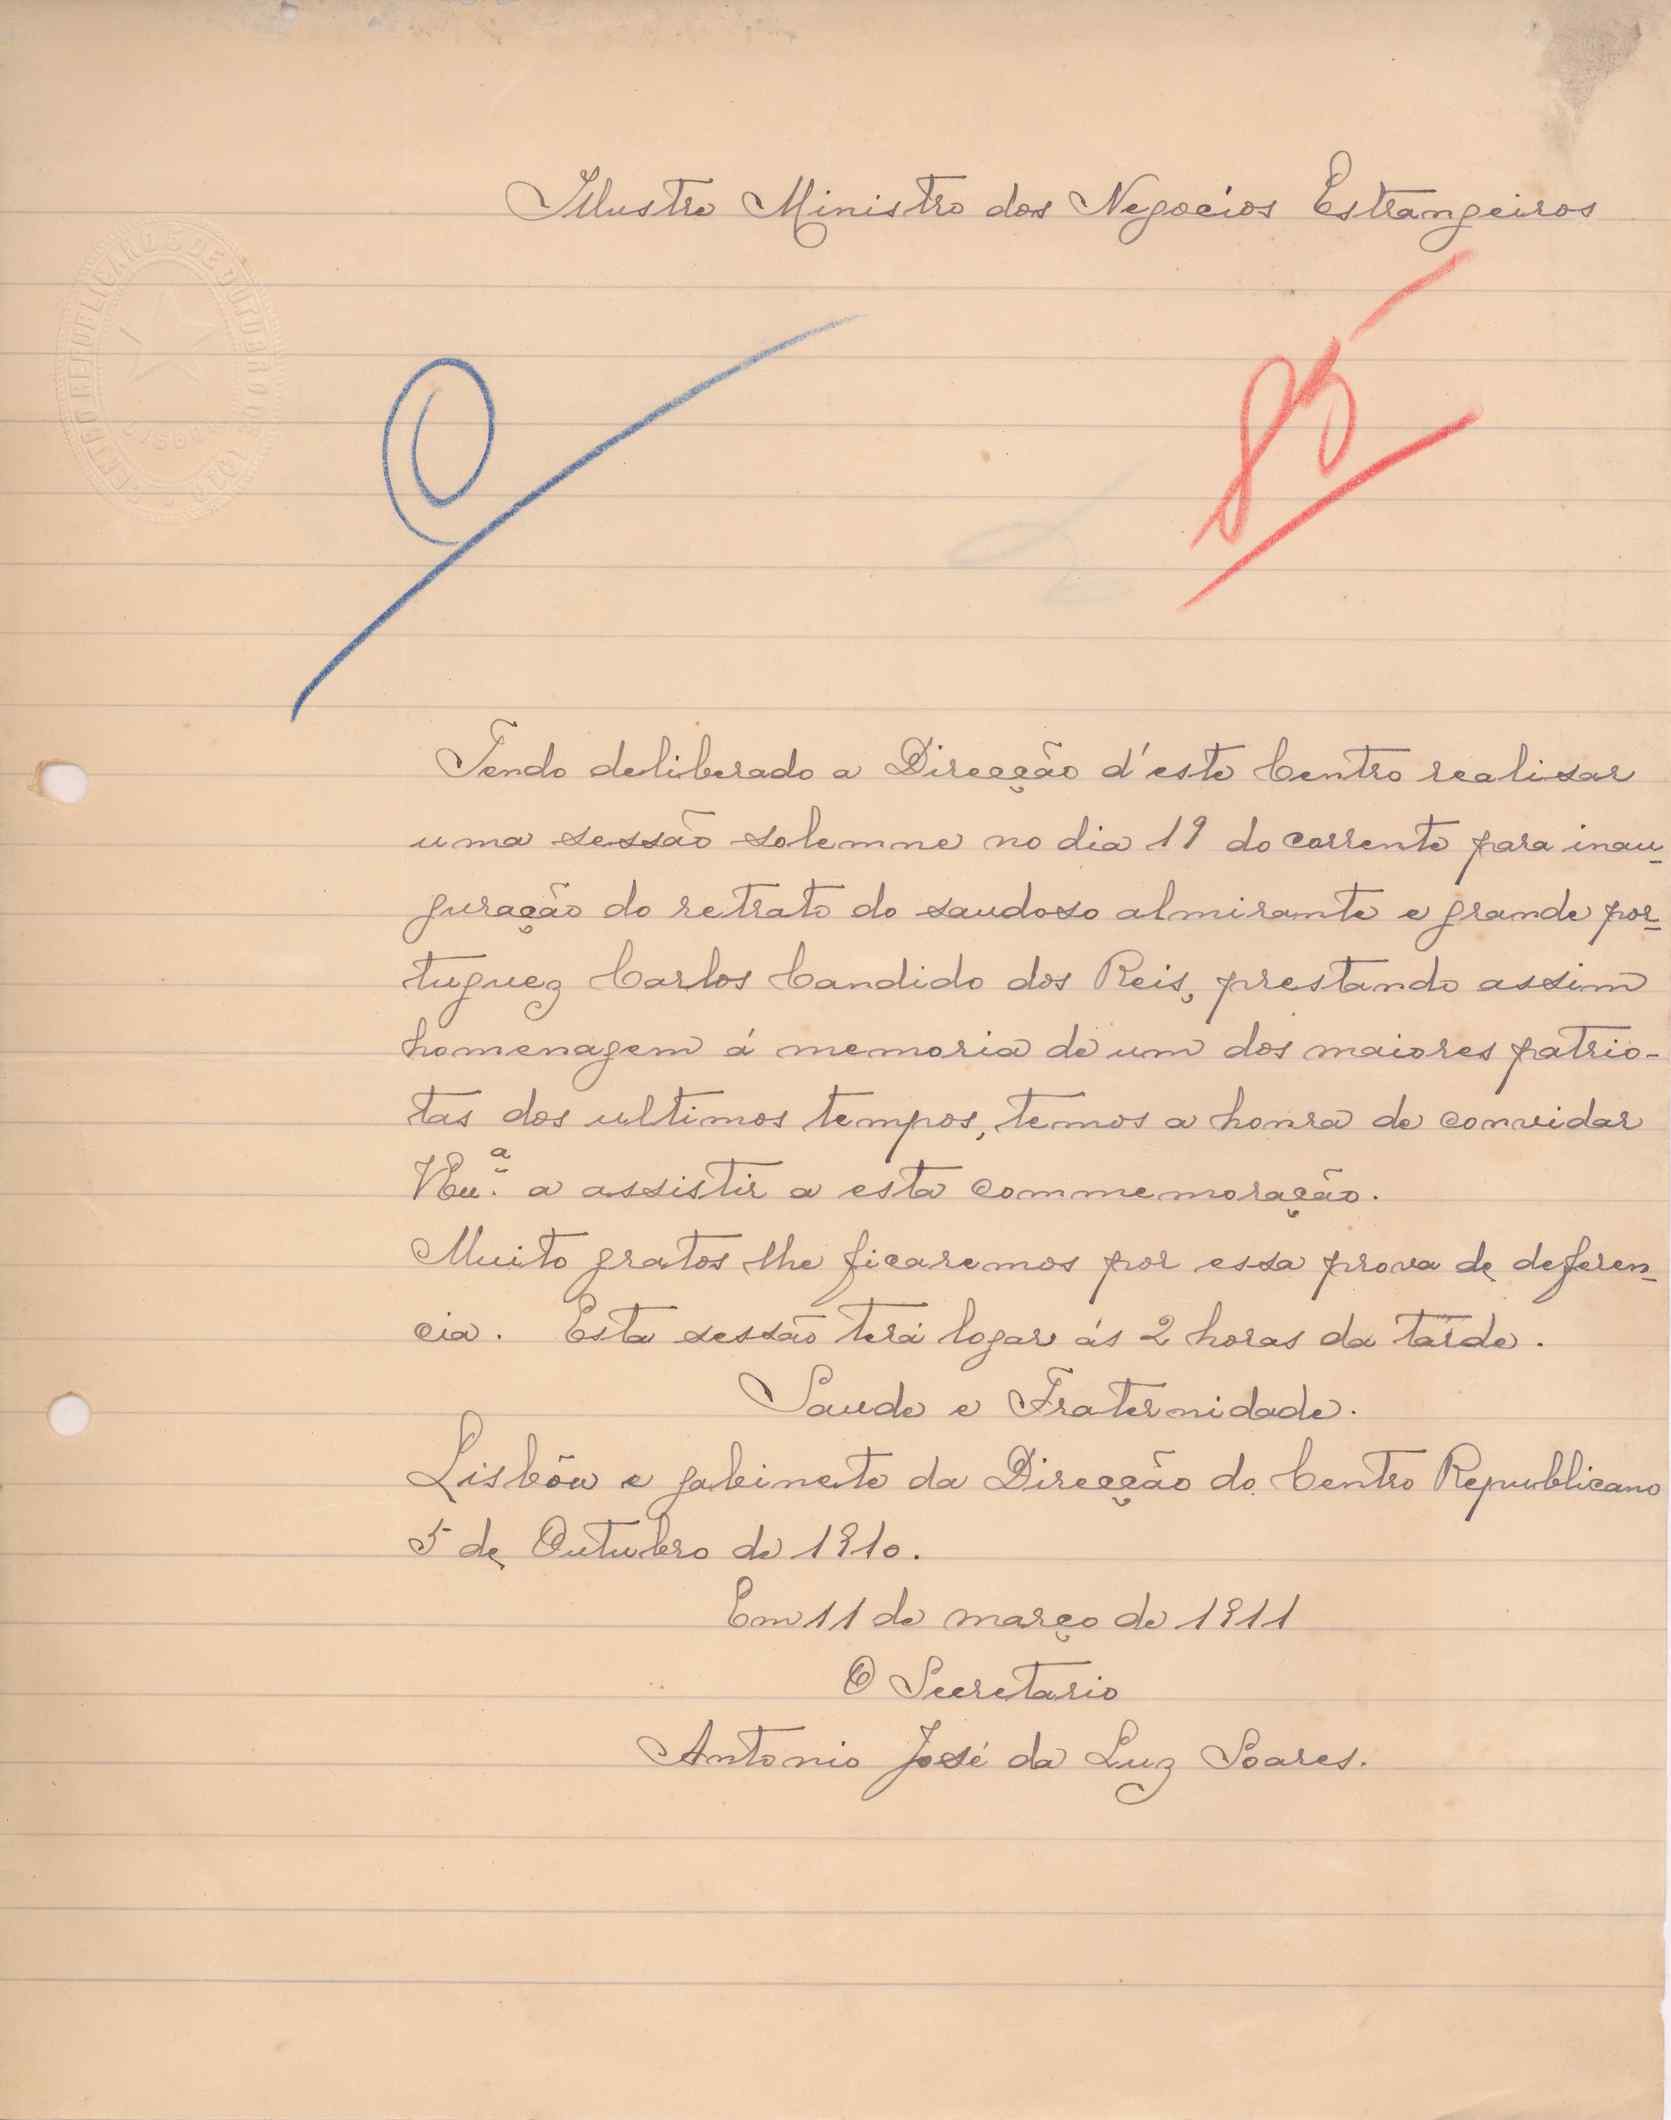 Illustre Ministro dos Negocios Estrangeiros
CENTRO REPUBLICANO 5 DE OUTUBRO DE 1910
LISBOA
85
Tendo deliberado a Direcção d'este Centro realisar
uma sessão solemne no dia 19 do corrente para inau-
guração do retrato do saudoso almirante e grande por-
tuguez Carlos Candido dos Reis, prestando assim
homenagem á memoria de um dos maiores patrio-
tas dos ultimos tempos, temos a honra de convidar
V. Ex.ª a assistir a esta commemoração.
Muito gratos lhe ficaremos por essa prova de deferen-
cia. Esta sessão terá logar ás 2 horas da tarde.
Saude e Fraternidade.
Lisbôa e gabinete da Direcção do Centro Republicano
5 de Outubro de 1910.
Em 11 de março de 1911
O Secretario
Antonio José da Luz Soares.